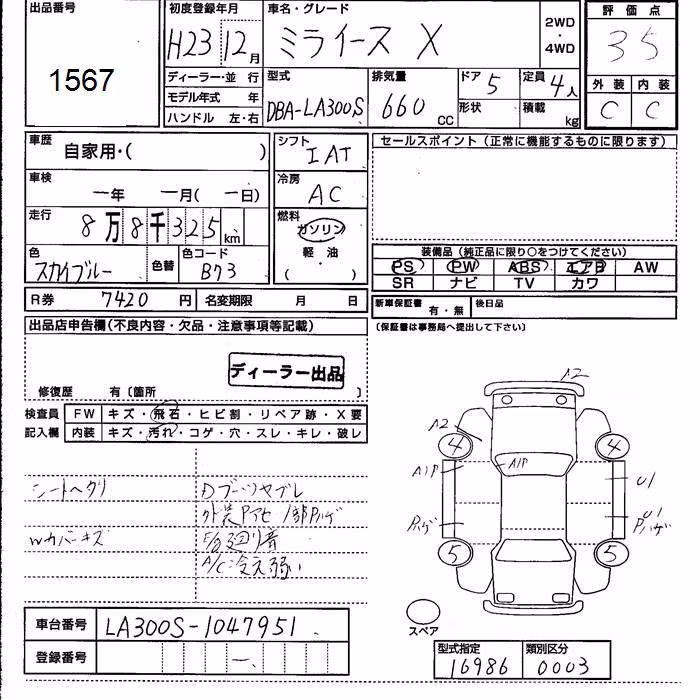 出品番号
1567
初度登録年月
H23 12月
車名・グレード
ミライース X
2WD
・
4WD
評価点
35
外装 内装
C C
ディーラー・並 行
モデル年式 年
ハンドル 左・右
型式
DBA-LA300S
排気量
660
cc
ドア 5
形状
定員 4人
積載
kg
車歴
自家用・( )
車検
一年 一月(一日)
走行
8万8千325km
色
スカイブルー
色替
色コード
B73
シフト
IAT
冷房
AC
燃料
ガソリン
・
軽・油
( )
セールスポイント(正常に機能するものに限ります)
装備品(純正品に限り○をつけてください)
PS PW ABS エアB AW
SR ナビ TV カワ
R券 7420円 名変期限 月 日
新車保証書 有・無 後日品
(保証書は事務局へ提出して下さい)
出品店申告欄(不良内容・欠品・注意事項等記載)
ディーラー出品
修復歴 有〔箇所 〕
検査員 FW キズ・飛石・ヒビ割・リペア跡・X要
記入欄 内装 キズ・汚れ・コゲ・穴・スレ・キレ・破レ
シートヘタリ
Dブーツヤブレ
外装Pアセ 1部Pハゲ
Wカバーキズ
廻り音
A/C冷え弱い
A2
A2
4
4
A1P
A1P
U1
Pハゲ
U1
Pハゲ
5
5
スペア
車台番号 LA300S-1047951
登録番号 —
型式指定 類別区分
16986 0003